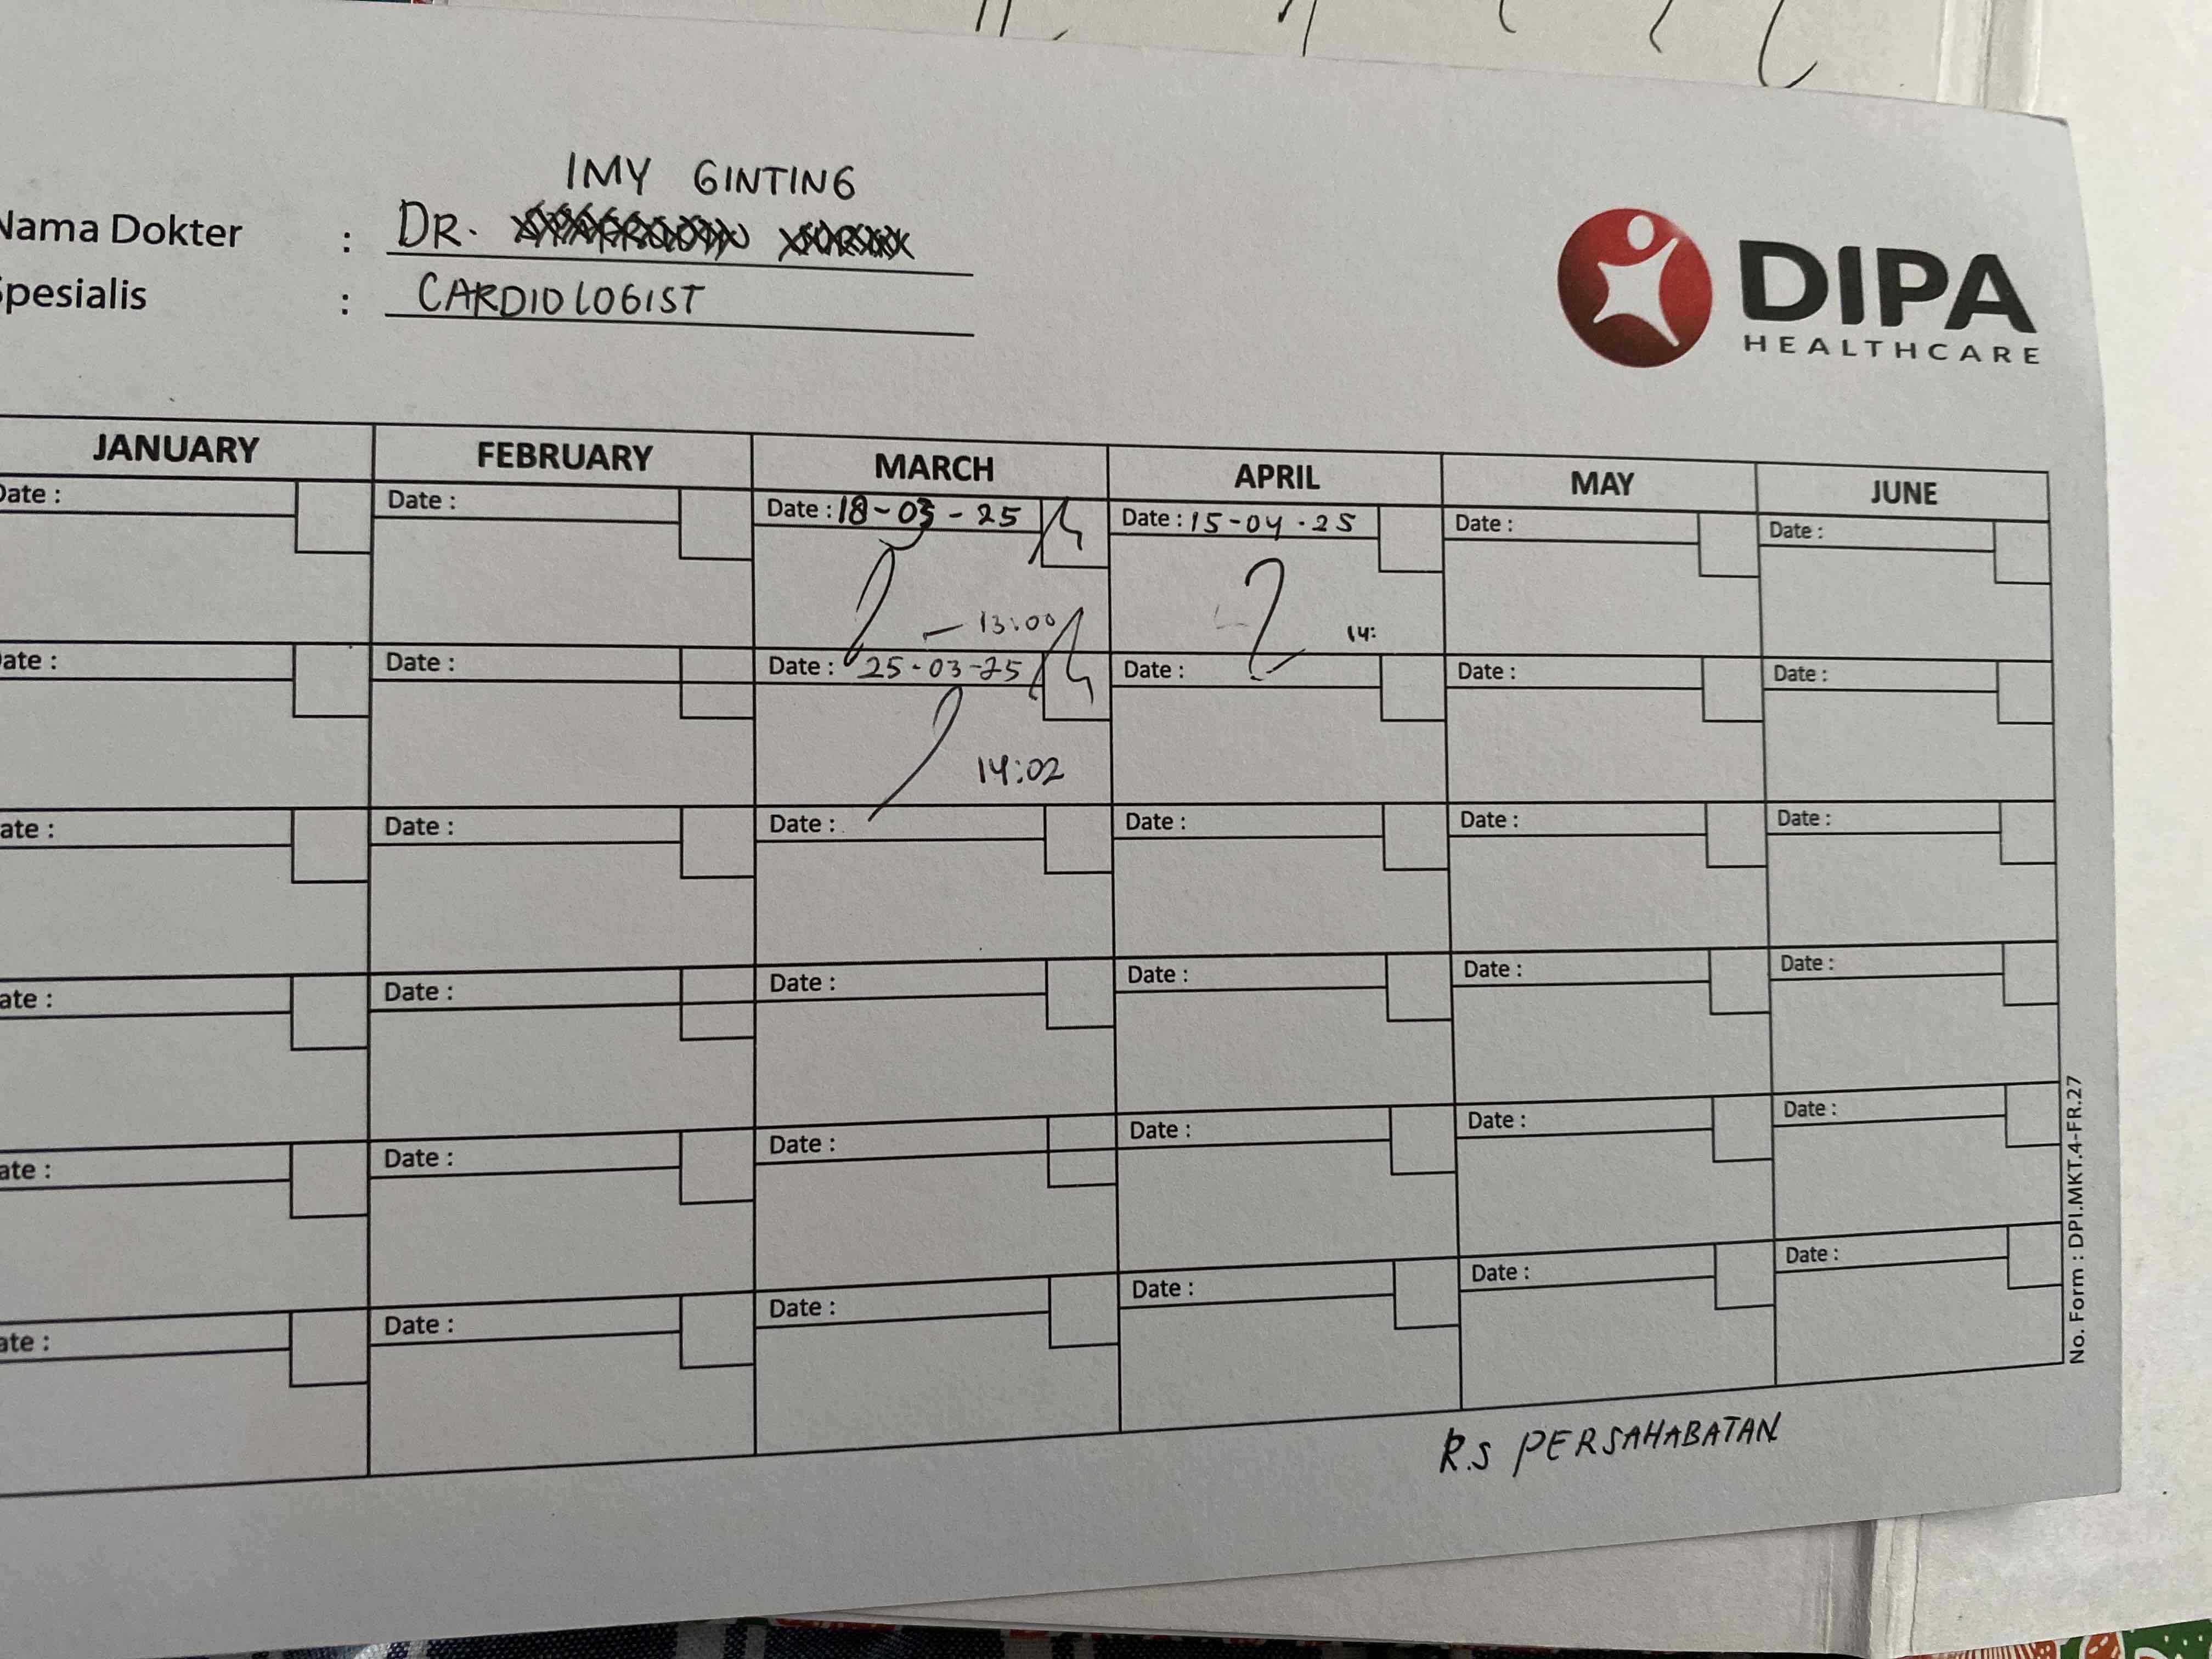 IMY GINTING
Nama Dokter : DR.
Spesialis : CARDIOLOGIST
DIPA
HEALTHCARE
JANUARY FEBRUARY MARCH APRIL MAY JUNE
Date : Date : Date : 18-03-25 Date : 15-04-25 Date : Date :
13:00 14:
Date : Date : Date : 25-03-25 Date : Date : Date :
14:02
Date : Date : Date : Date : Date : Date :
Date : Date : Date : Date : Date : Date :
Date : Date : Date : Date : Date : Date :
Date : Date : Date : Date : Date : Date :
No. Form : DPI.MKT.4-FR.27
R.S PERSAHABATAN